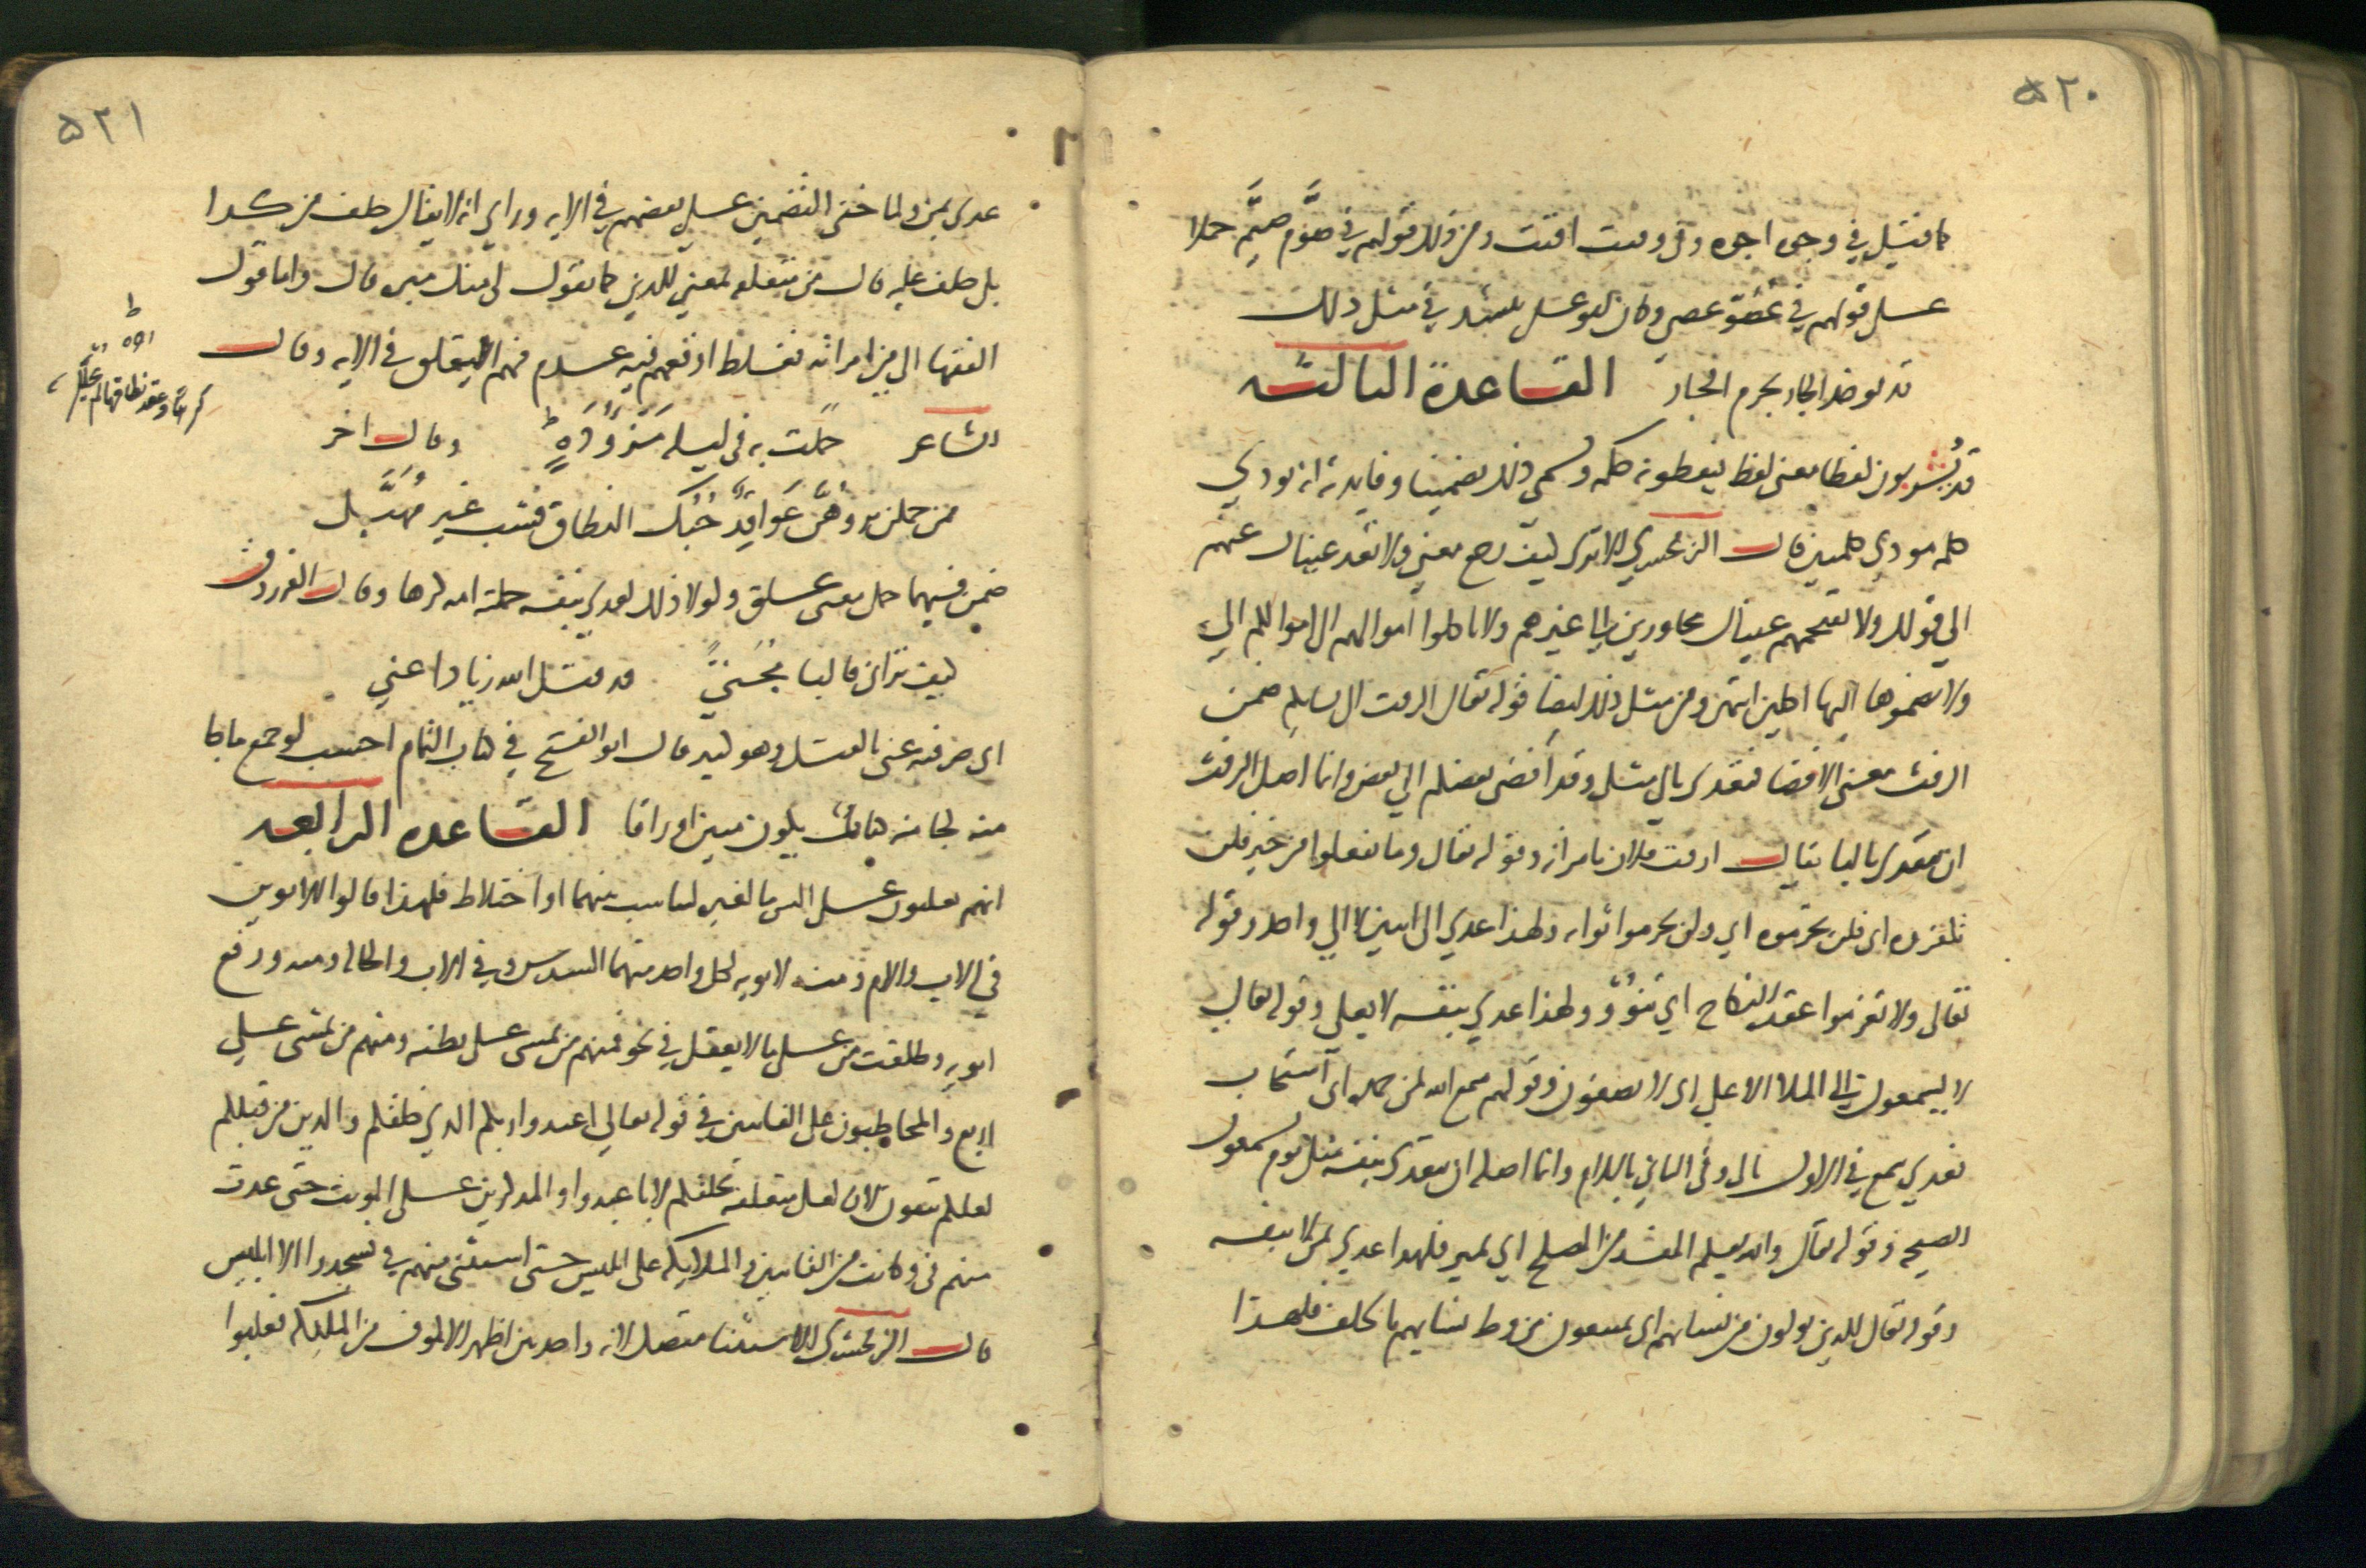 ٥٢٠
كما قيل في وجوه اجوه وفي وقتت اقتت ومن ذلك قولهم في صُوَّم صُيَّم حملا
على قولهم في عُصُوّ عصي وكان ابو على ينشد في مثل ذلك
قد يوخذ الجار بجرم الجار القاعدة الثالثه
قد يُشربون لفظا معنى لفظ فيعطونه حكمه ويسمى ذلك تضمينا وفايدته ان تودي
كلمه مودي كلمتين قال الزمخشري الا ترى كيف رجع معنى ولا تعد عيناك عنهم
الى قولك ولا تقتحمهم عيناك مجاورتين الى غيرهم ولا تاكلوا اموالهم الى اموالكم اي
ولا تضموها اليها اكلين انتهى ومن مثل ذلك ايضا قوله تعالى الرفث الى نسايكم ضمن
الرفث معنى الافضا فعدى بالى مثل وقد أفضى بعضكم الى بعض وانما اصل الرفث
ان يتعدى بالبا يقال ارفث فلان بامراته وقوله تعالى وما تفعلوا من خير فلن
تكفروه اى فلن تحرموه اي ولن تحرموا ثوابه ولهذا عدي الى اثنين لا الى واحد وقوله
تعالى ولا تعزموا عقدة النكاح اي تنوُوْ ولهذا عدي بنفسه لا بعلى وقوله تعالى
لا يسمعون الى الملا الاعلى اى لا يصغون وقولهم سمع الله لمن حمده اى استجاب
فعدي يسمع في الاول بالى وفي الثاني باللام وانما اصله ان يتعدى بنفسه مثل يوم يسمعون
الصيحه وقوله تعالى والله يعلم المفسد من المصلح اي يميز فلهذا عدي بمن لا بنفسه
وقوله تعالى للذين يولون من نسائهم اى يمتنعون من وطء نسايهم بالحلف فلهذا
٥٢١
عدي بمن ولما خفى التضمين على بعضهم في الايه وراى انه لا يقال حلف من كذا
بل حلف عليه قال من متعلقه بمعنى للذين كما تقول لى منك مبره قال واما قول
الفقها الى من امراته فغلط اوقعهم فيه عدم فهم المتعلق في الايه وقال
الشاعر حَمَلت به في ليله مَزءُودَةٍ وقال اخر
ممن حملن به وهُنَّ عَوَاقِدٌ حُبُكَ النطاق فشب غير مُهَبَّل
ضمن فيهما حمل معنى علق ولولا ذلك لعدي بنفسه حملته امه كرها وقال الفرزدق
كيف تراني قالبا مِجَنّي قد قتل الله زيادا عني
اى صرفه عنى بالقتل وهو كثير قال ابو الفتح في كتاب التمام احسب لو جمع ما جا
منه لجا منه كتاب يكون مبين اوراقا القاعده الرابعه
انهم يغلبون على الشي ما لغيره لتناسب بينهما او اختلاط فلهذا قالوا الابوين
في الاب والام ومنه ولابويه لكل واحد منهما السدس وفي الاب والخاله ومنه ورفع
ابويه وطلقت من على ما لا يعقل في نحو فمنهم من يمشى على بطنه ومنهم من يمشى على
اربع والمخاطبون على الغايبين في قوله تعالى اعبدوا ربكم الذي خلقكم والذين من قبلكم
لعلكم تتقون لان لعل متعلقه بخلقكم لا باعبدوا والمذكرين على المونث حتى عدت
منهم فى وكانت من القانتين والملايكه على ابليس حتى استثنى منهم في فسجدوا الا ابليس
قال الزمخشري الاستثنا متصل لانه واحد بين اظهر الالوف من الملايكه فغلبوا
كرها وعقد نطاقها لم يحلل